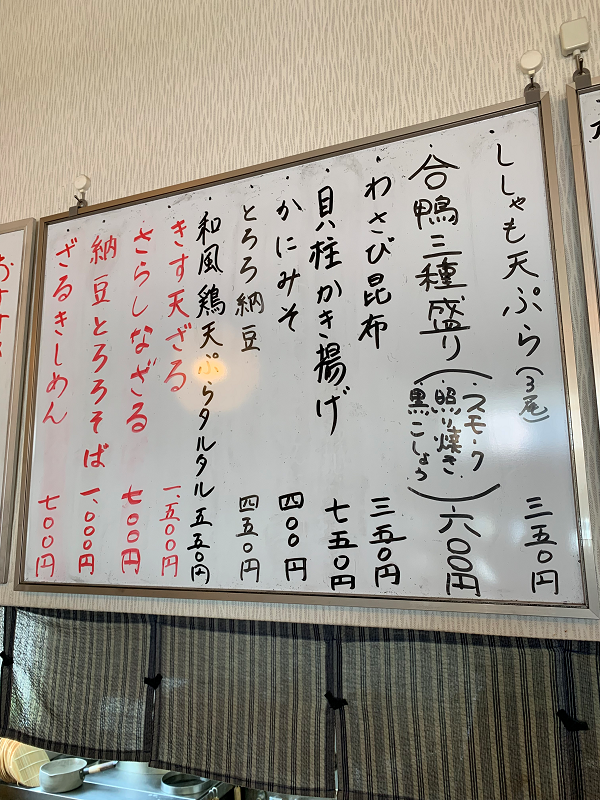 ししゃも天ぷら(3尾) 三五〇円
合鴨三種盛り(スモーク 照り焼き 黒こしょう) 六〇〇円
わさび昆布 三五〇円
貝柱かき揚げ 七五〇円
かにみそ 四〇〇円
とろろ納豆 四五〇円
和風鶏天ぷらタルタル 五五〇円
きす天ざる 一、五〇〇円
さらしなざる 七〇〇円
納豆とろろそば 一、〇〇〇円
ざるきしめん 七〇〇円